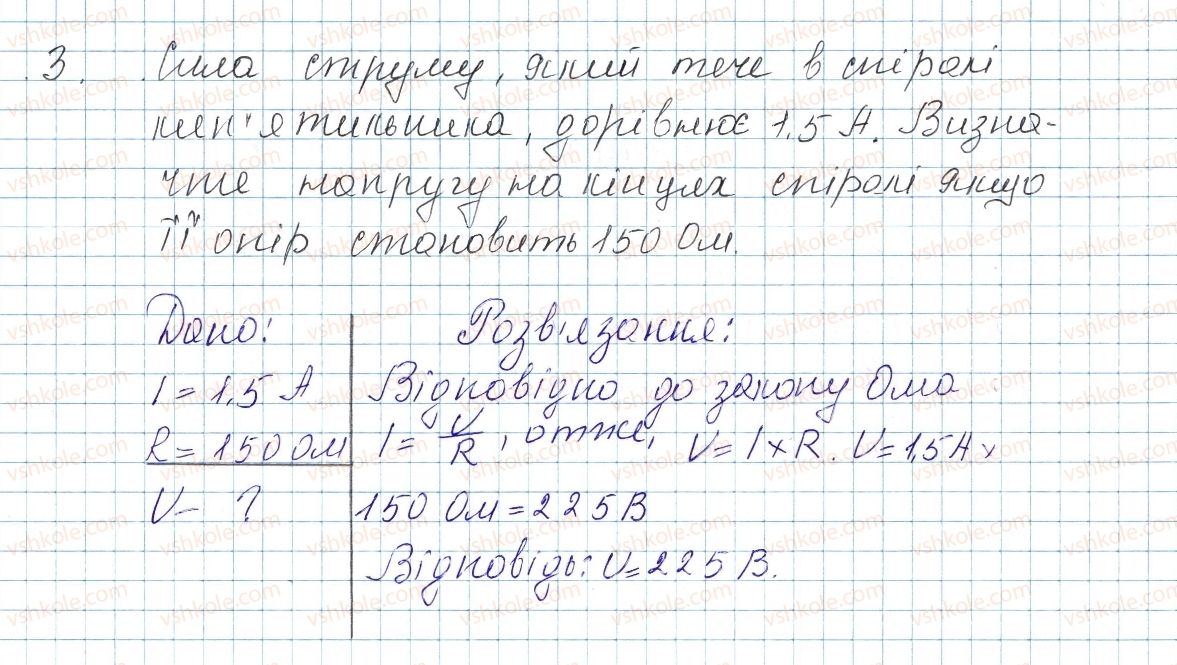 3. Сила струму, який тече в спіралі
кип'ятильника, дорівнює 1,5 А. Визна-
чте напругу на кінцях спіралі якщо
її опір становить 150 Ом.
Дано:
I = 1,5 А
R = 150 Ом
U - ?
Розв'язання:
Відповідно до закону Ома
I = U/R, отже, U = I × R. U = 1,5 А ×
150 Ом = 225 В
Відповідь: U = 225 В.